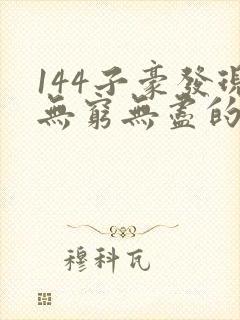 144子豪發現
無窮無盡的
穆科瓦